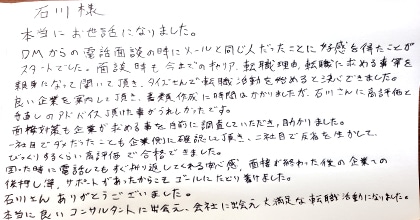 石川様
本当にお世話になりました。
DMからの電話面談の時にメールと同じ人だったことに好感を得たことが
スタートでした。面談時も今までのキャリア、転職理由、転職に求める事等を
親身になって聞いて頂き、タイズさんで転職活動を始めると決心できました。
良い企業を案内して頂き、書類作成に時間はかかりましたが、石川さんに高評価と
手直しのアドバイス頂けた事がうれしかったです。
面接対策も企業が求める事を的確に調査していただき、助かりました。
一社目でダメだったことも企業側に確認して頂き、二社目で反省を生かして、
びっくりするくらい高評価で合格できました。
困った時に電話してもすぐ折り返してくれる安心感、面接が終わった後の企業への
後押し等、サポートがあったからこそゴールにたどり着けました。
石川さんありがとうございました。
本当に良いコンサルタントに出会え、会社に出会え大満足な転職活動になりました。